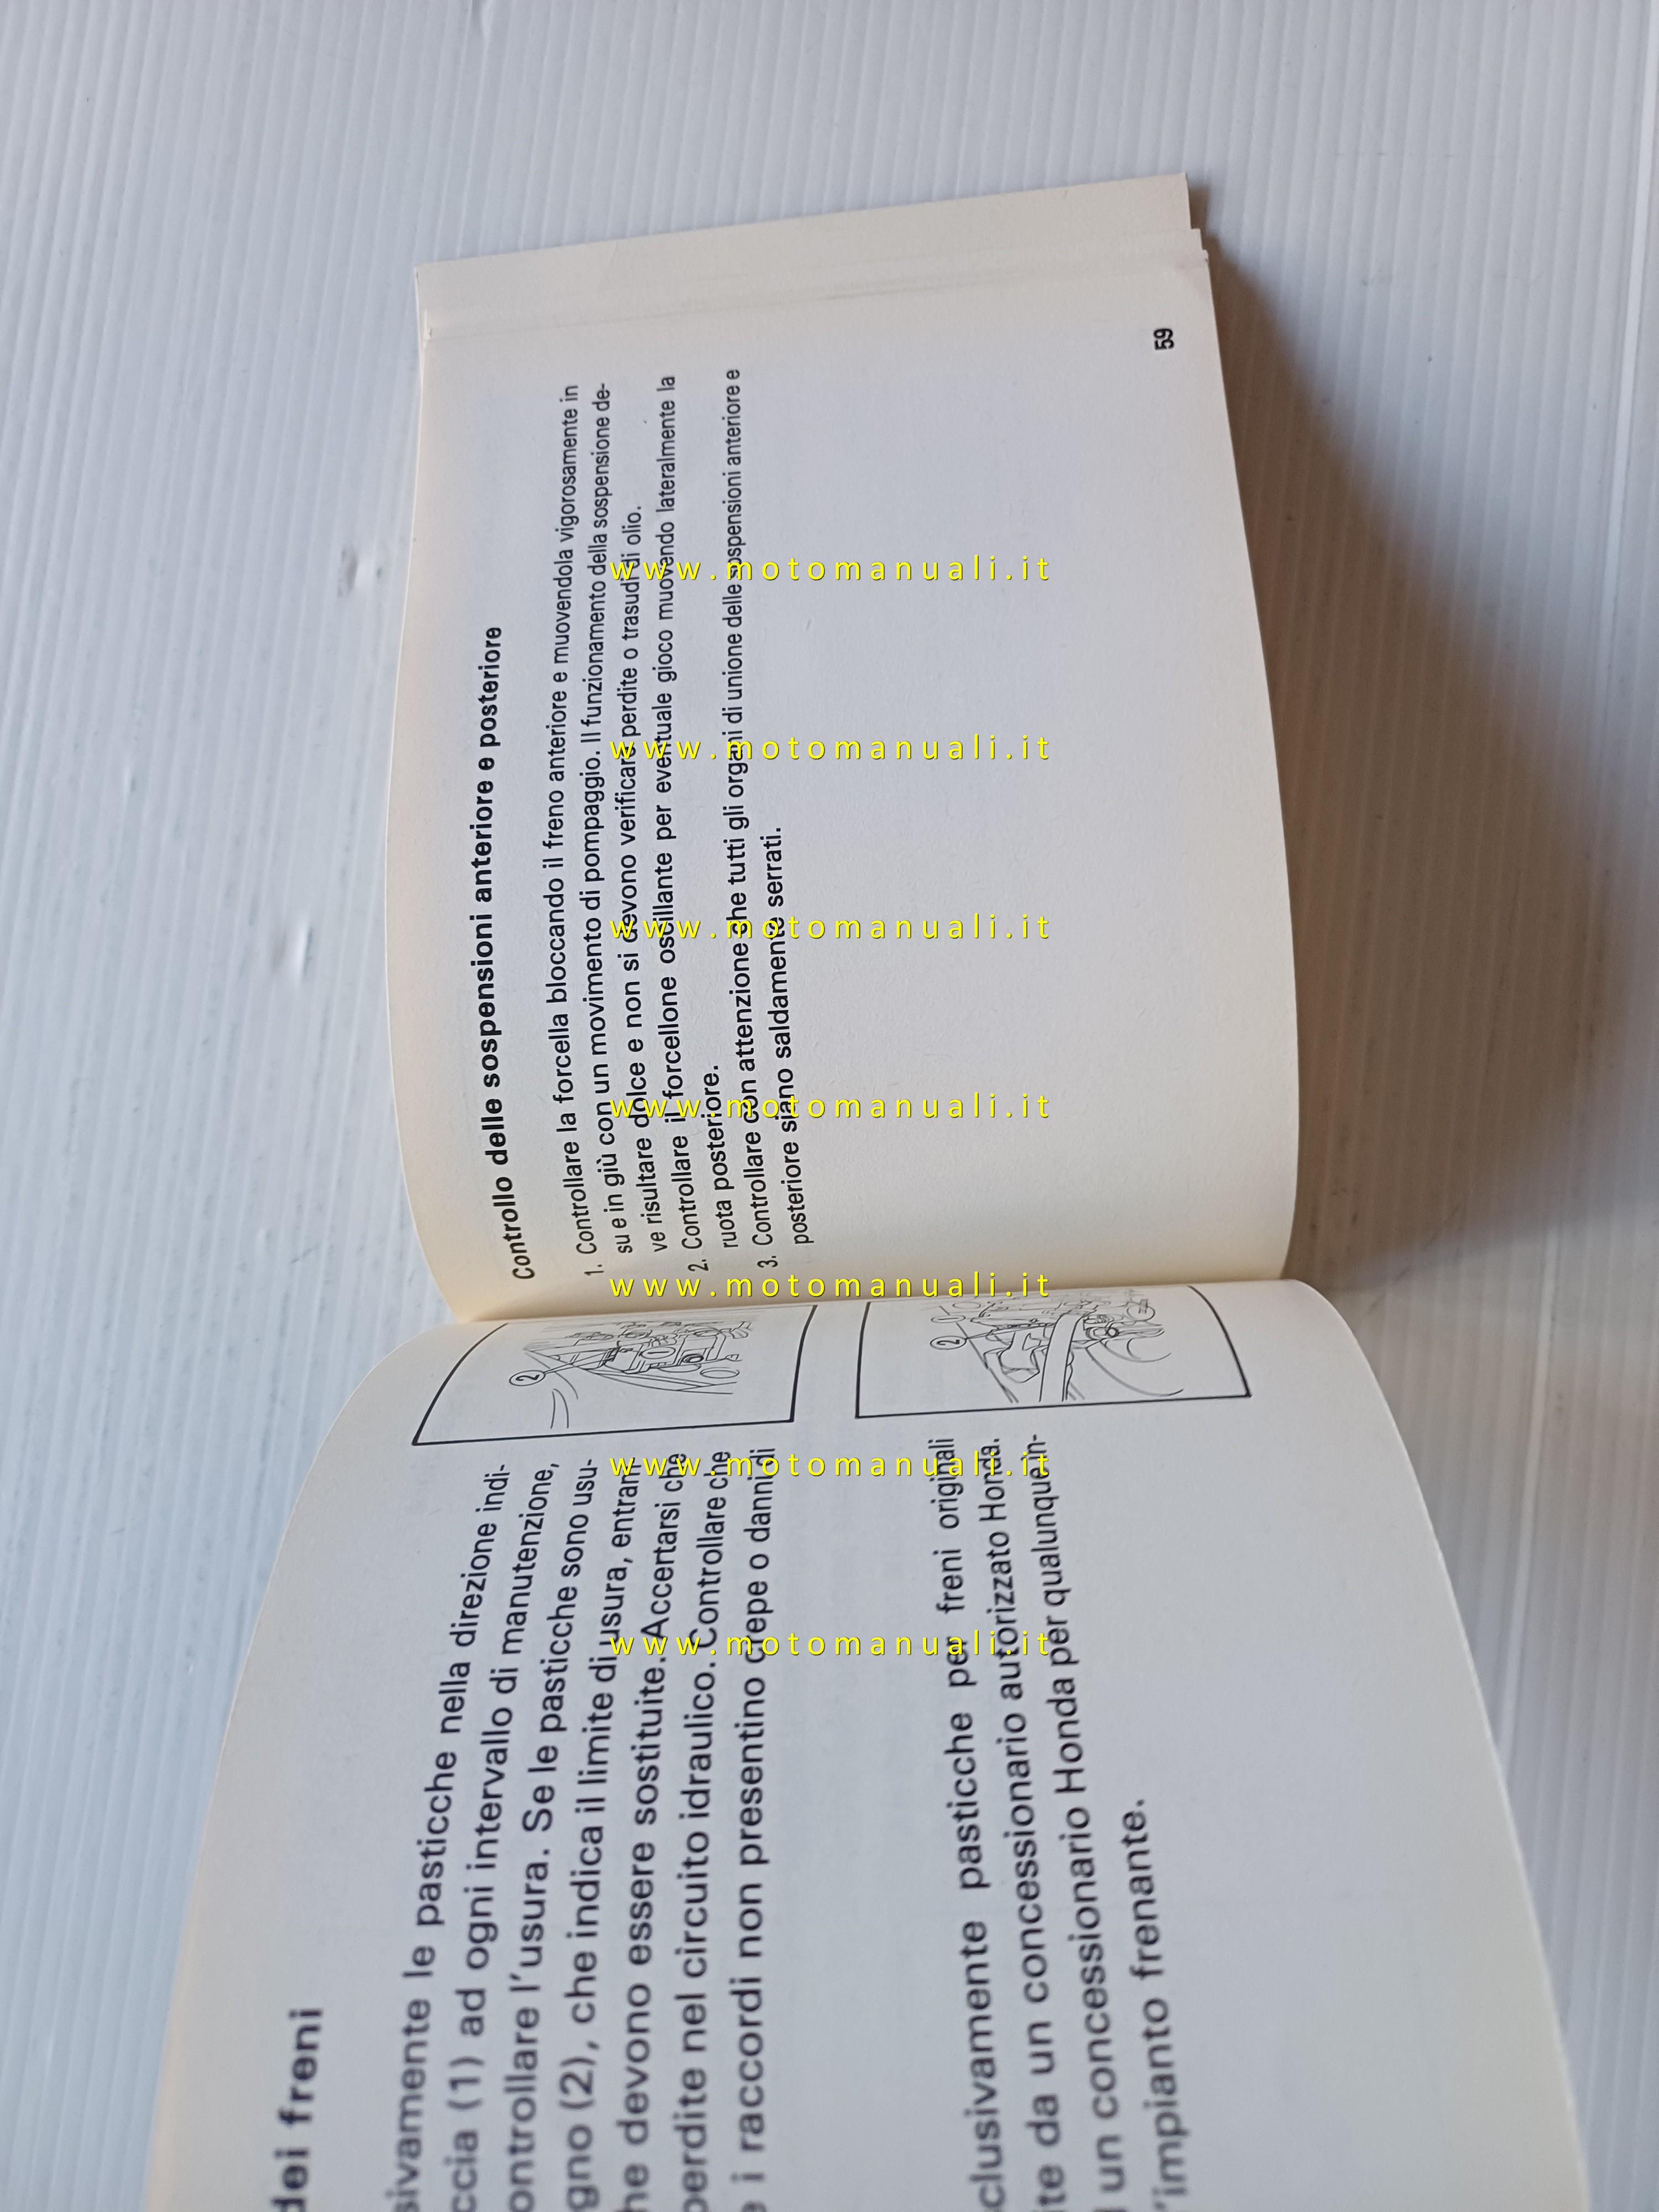 dei freni
sivamente le pasticche nella direzione indi-
ccia (1) ad ogni intervallo di manutenzione,
ontrollare l'usura. Se le pasticche sono usu-
gno (2), che indica il limite di usura, entram-
he devono essere sostituite. Accertarsi che
perdite nel circuito idraulico. Controllare che
e i raccordi non presentino crepe o danni di
clusivamente pasticche per freni originali
ite da un concessionario autorizzato Honda.
un concessionario Honda per qualunque in-
l'impianto frenante.
2
2
Controllo delle sospensioni anteriore e posteriore
1. Controllare la forcella bloccando il freno anteriore e muovendola vigorosamente in
su e in giù con un movimento di pompaggio. Il funzionamento della sospensione de-
ve risultare dolce e non si devono verificare perdite o trasudi di olio.
2. Controllare il forcellone oscillante per eventuale gioco muovendo lateralmente la
ruota posteriore.
3. Controllare con attenzione che tutti gli organi di unione delle sospensioni anteriore e
posteriore siano saldamente serrati.
59
www.motomanuali.it
www.motomanuali.it
www.motomanuali.it
www.motomanuali.it
www.motomanuali.it
www.motomanuali.it
www.motomanuali.it